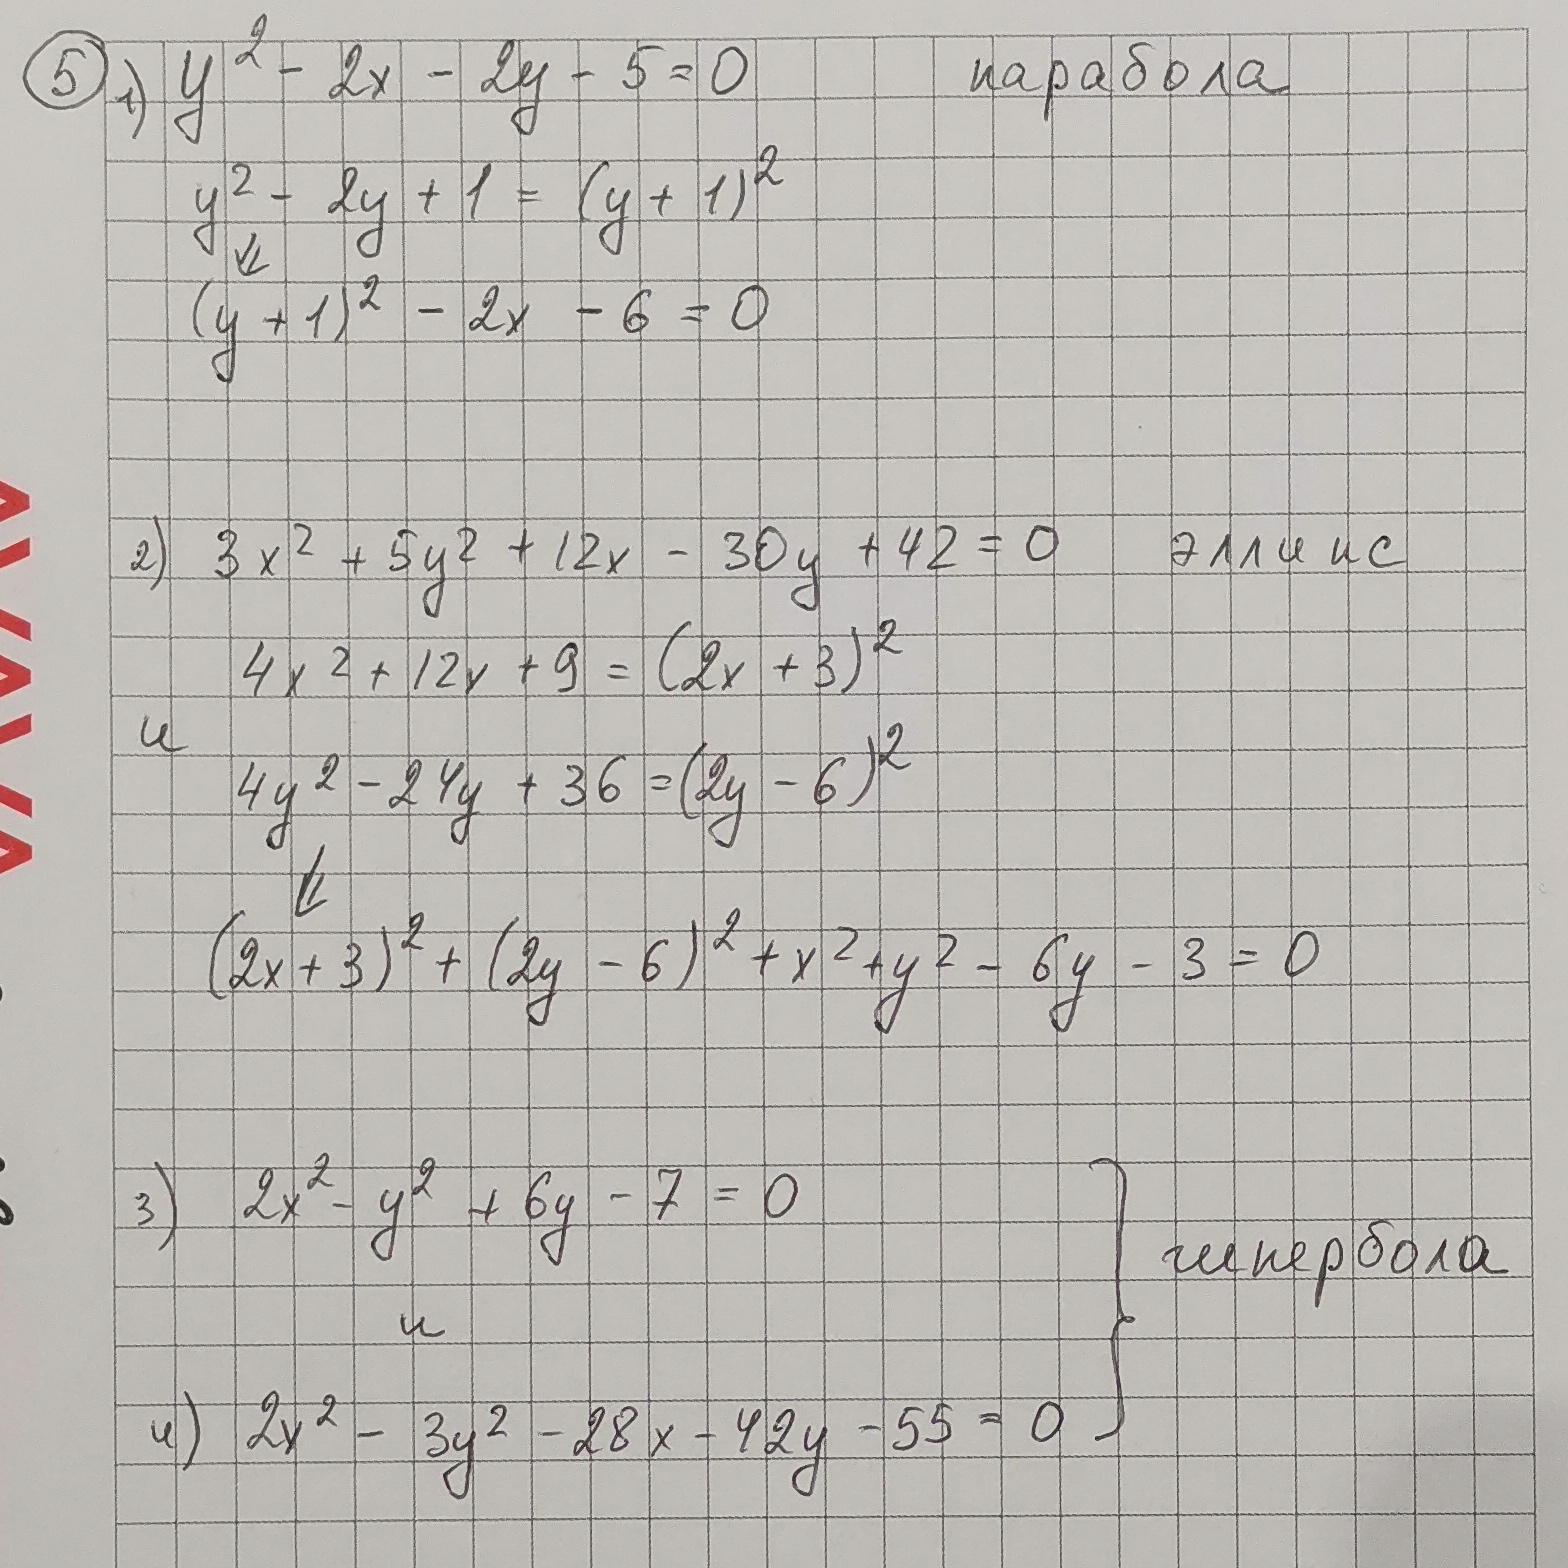 5 1) y² - 2x - 2y - 5 = 0 парабола
y² - 2y + 1 = (y + 1)²
(y + 1)² - 2x - 6 = 0
2) 3x² + 5y² + 12x - 30y + 42 = 0 эллипс
4x² + 12x + 9 = (2x + 3)²
и
4y² - 24y + 36 = (2y - 6)²
(2x + 3)² + (2y - 6)² + x² + y² - 6y - 3 = 0
3) 2x² - y² + 6y - 7 = 0
гипербола
и
4) 2x² - 3y² - 28x - 42y - 55 = 0